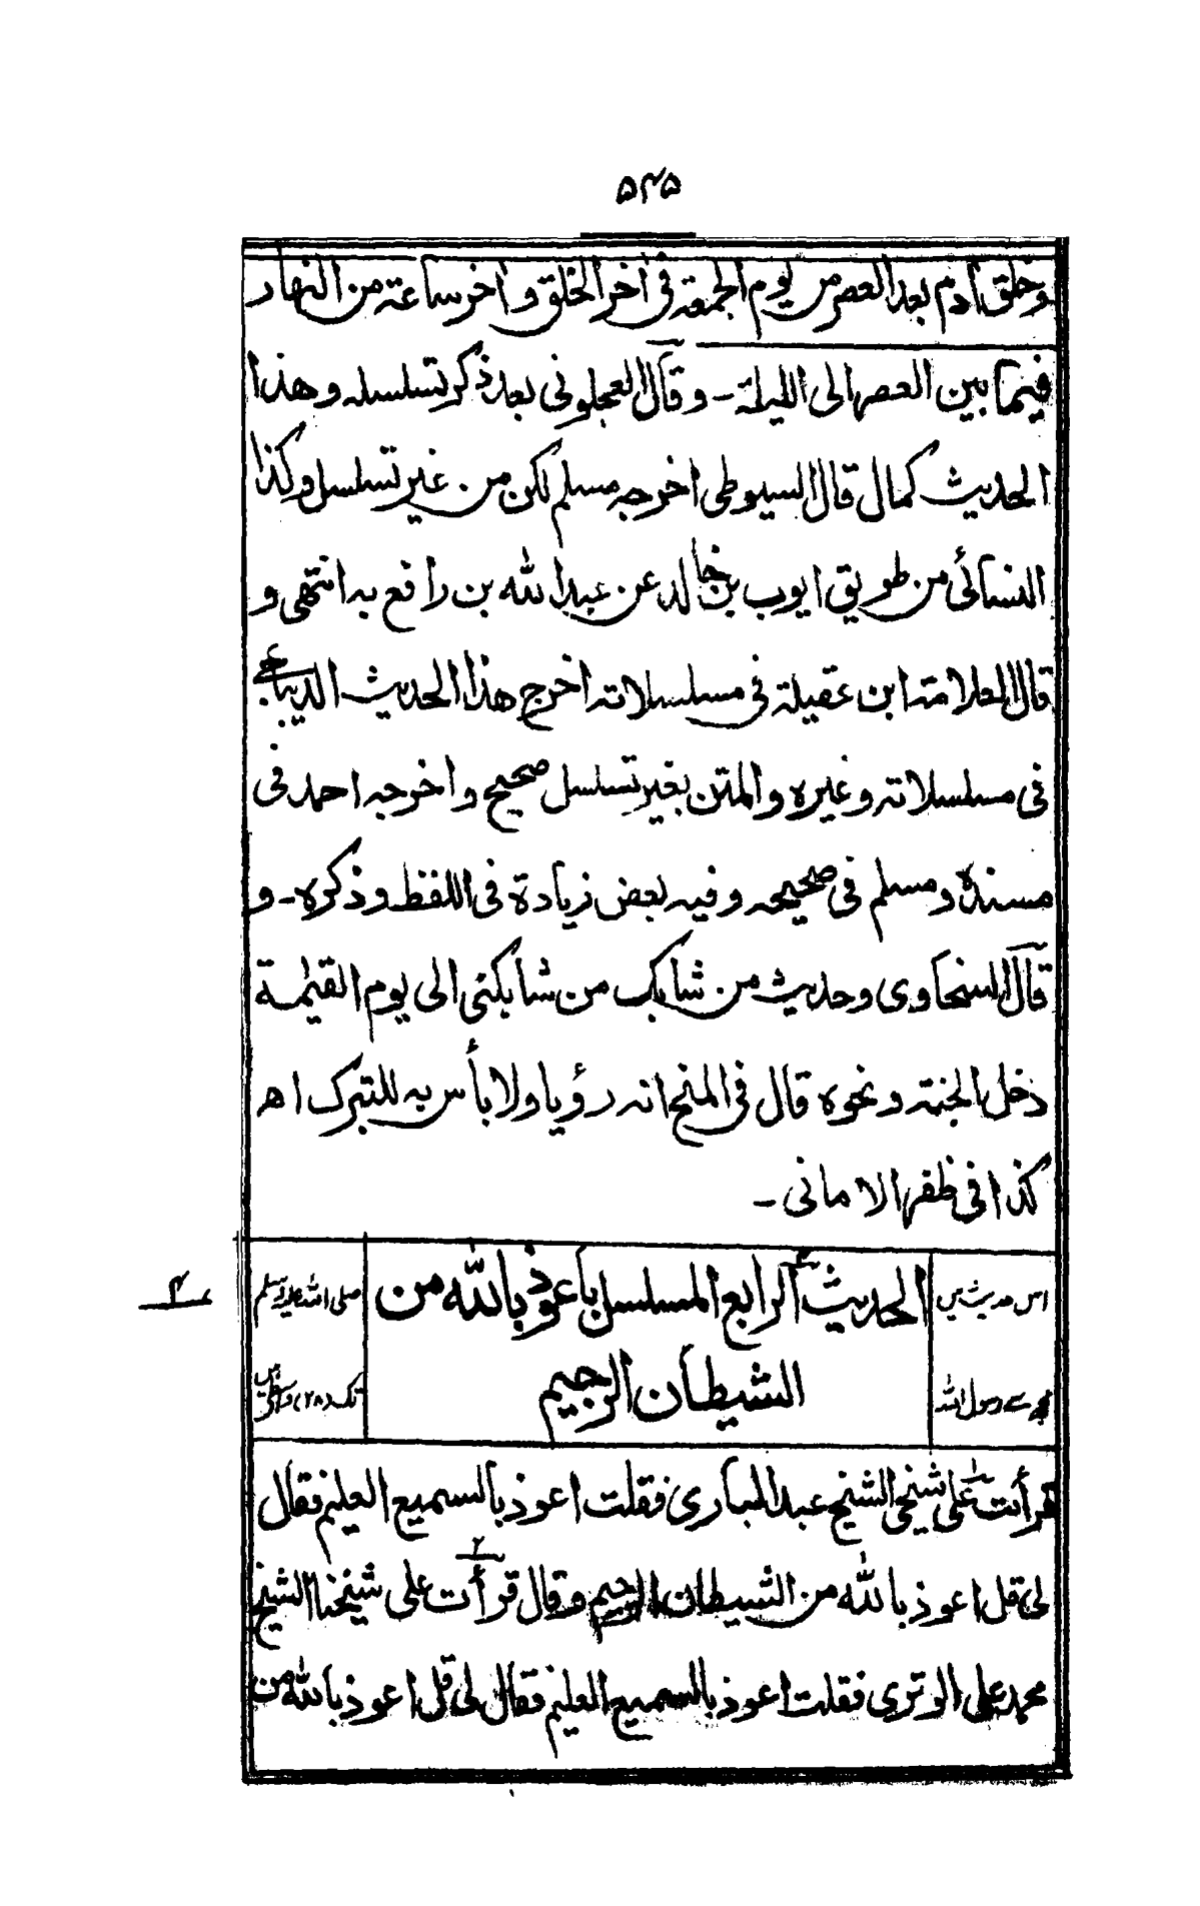 ۵۴۵
وخلق آدم بعد العصر من يوم الجمعة فى آخر الخلق وآخر ساعة من النهار
فيما بين العصر الى الليلة ـ وقال العجلونى بعد ذكر تسلسله وهذا
الحديث كمال قال السيوطى اخرجه مسلم لكن من غير تسلسل وكذا
النسائى من طريق ايوب بن خالد عن عبد الله بن رافع به انتهى و
قال العلامة ابن عقيلة فى مسلسلاته اخرج هذا الحديث الديباجى
فى مسلسلاته وغيره والمتن بغير تسلسل صحيح واخرجه احمد فى
مسنده ومسلم فى صحيحه وفيه بعض زيادة فى اللفظ وذكره ـ و
قال السخاوى وحديث من شابك من شابكنى الى يوم القيٰمة
دخل الجنة ونحوه قال فى المنح انه رؤيا ولا بأس به للتبرك اھ
كذا فى ظفر الامانى ـ
الحديث الرابع المسلسل باعوذ بالله من
الشيطان الرجيم
اس حدیث میں
مجھ سے رسول اللہ
صلی اللہ علیہ وسلم
تک (۲۸) واسطے ہیں
۴
قرأت على شيخى الشيخ عبد البارى فقلت اعوذ بالسميع العليم فقال
لى قل اعوذ بالله من الشيطان الرجيم وقال قرأت على شيخنا الشيخ
محمد على الوترى فقلت اعوذ بالسميع العليم فقال لى قل اعوذ بالله من